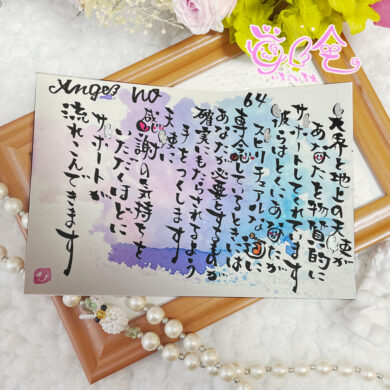 Angel no 64
天界と地上の天使が
あなたを物質的に
サポートしてくれています
彼らはとくにあなたが
スピリチュアルな道に
専念しているときには
あなたが必要とするものが
確実にもたらされるよう
手をつくします
天使に
感謝の気持ちを
いただくほどに
サポートが
流れこんできます